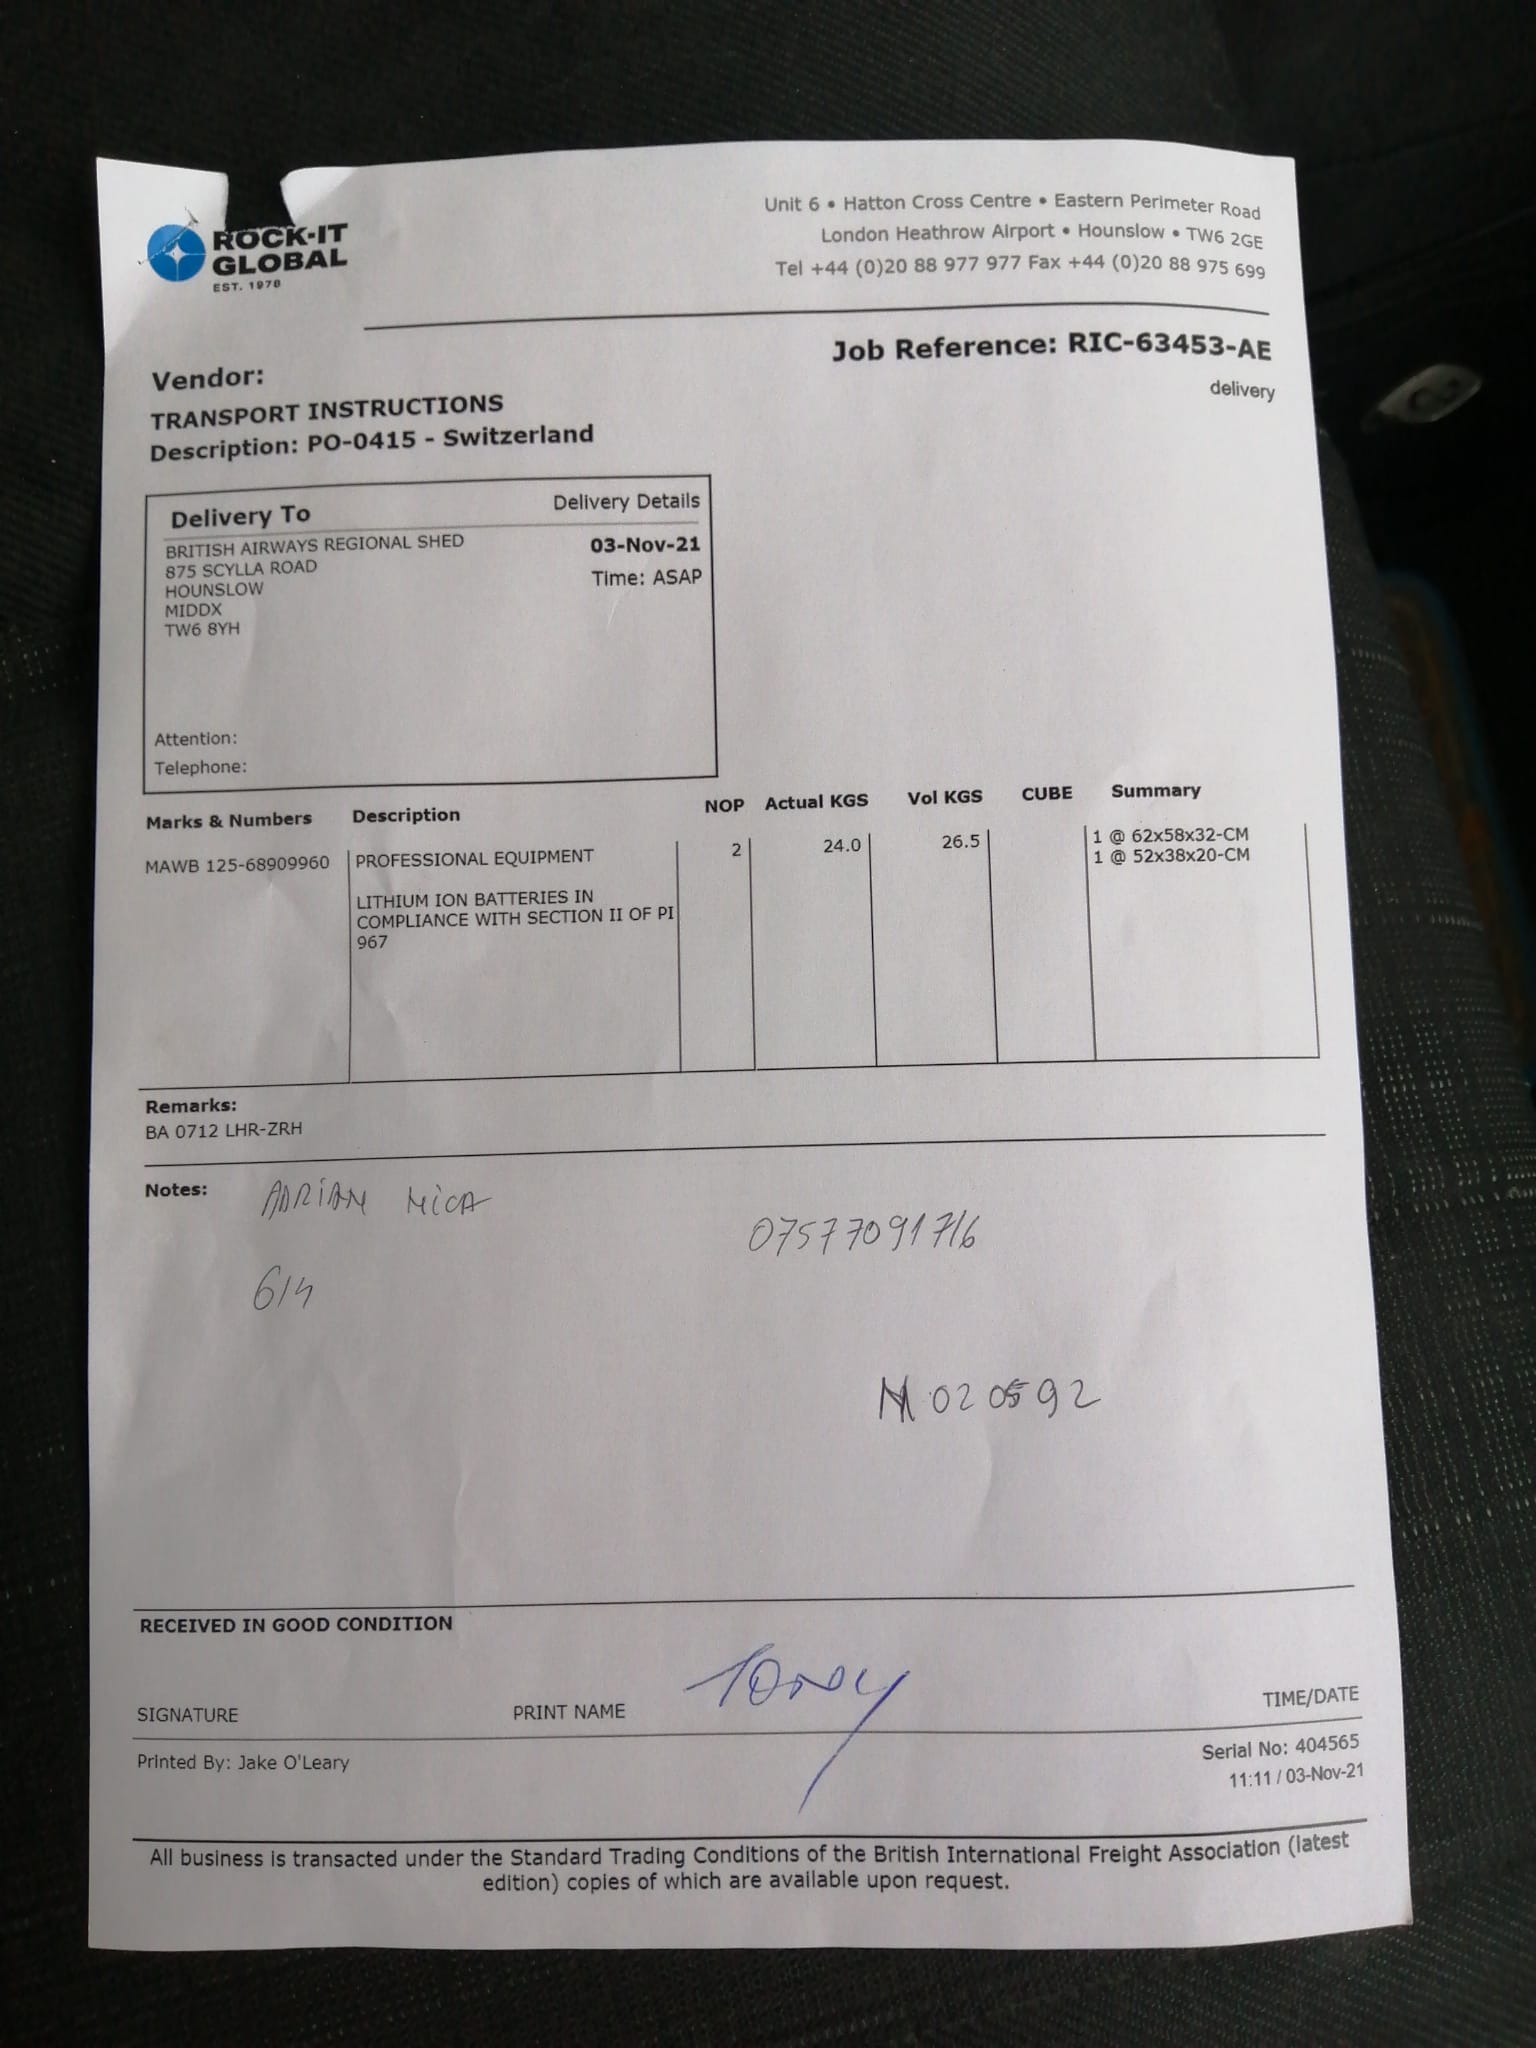 ROCK-IT
GLOBAL
EST. 1978
Unit 6 • Hatton Cross Centre • Eastern Perimeter Road
London Heathrow Airport • Hounslow • TW6 2GE
Tel +44 (0)20 88 977 977 Fax +44 (0)20 88 975 699
Job Reference: RIC-63453-AE
delivery
Vendor:
TRANSPORT INSTRUCTIONS
Description: PO-0415 - Switzerland
Delivery To
Delivery Details
BRITISH AIRWAYS REGIONAL SHED
875 SCYLLA ROAD
HOUNSLOW
MIDDX
TW6 8YH
03-Nov-21
Time: ASAP
Attention:
Telephone:
Marks & Numbers Description NOP Actual KGS Vol KGS CUBE Summary
MAWB 125-68909960 PROFESSIONAL EQUIPMENT 2 24.0 26.5 1 @ 62x58x32-CM
1 @ 52x38x20-CM
LITHIUM ION BATTERIES IN
COMPLIANCE WITH SECTION II OF PI
967
Remarks:
BA 0712 LHR-ZRH
Notes: ADRIAN MICA
07577091716
614
020592
RECEIVED IN GOOD CONDITION
SIGNATURE PRINT NAME Tony TIME/DATE
Printed By: Jake O'Leary
Serial No: 404565
11:11 / 03-Nov-21
All business is transacted under the Standard Trading Conditions of the British International Freight Association (latest
edition) copies of which are available upon request.